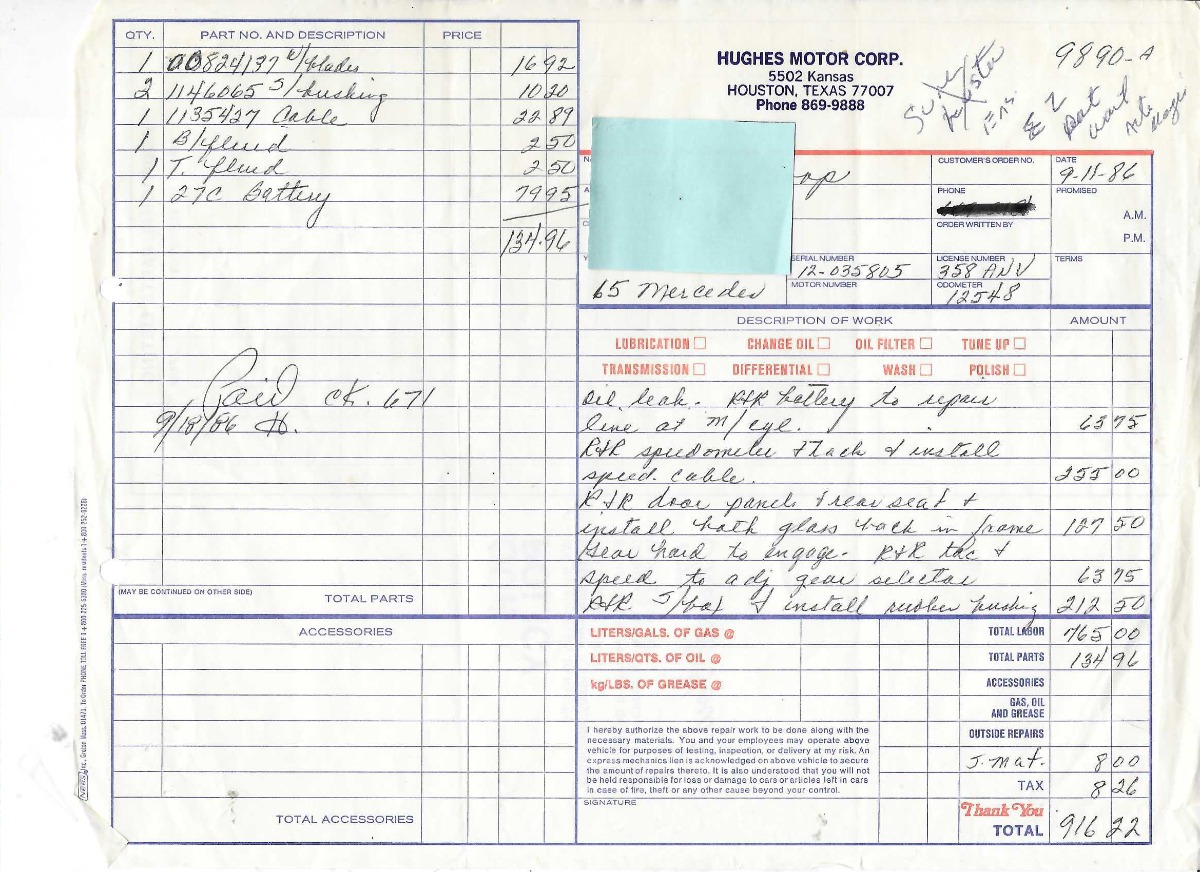 QTY. PART NO. AND DESCRIPTION PRICE
1 00824137 W/blades 16 92
2 1146065 S/bushing 10 20
1 1135427 Cable 22 89
1 B/fluid 2 50
1 T. fluid 2 50
1 27C Battery 79 95
134.96
Paid CK. 671
9/18/86
(MAY BE CONTINUED ON OTHER SIDE) TOTAL PARTS
ACCESSORIES
TOTAL ACCESSORIES
HUGHES MOTOR CORP.
5502 Kansas
HOUSTON, TEXAS 77007
Phone 869-9888
9890-A
op
CUSTOMER'S ORDER NO.
DATE
9-11-86
PHONE
PROMISED
A.M.
ORDER WRITTEN BY
P.M.
SERIAL NUMBER
12-035805
LICENSE NUMBER
358 ANV
TERMS
65 Mercedes
MOTOR NUMBER
ODOMETER
12548
DESCRIPTION OF WORK AMOUNT
LUBRICATION CHANGE OIL OIL FILTER TUNE UP
TRANSMISSION DIFFERENTIAL WASH POLISH
Oil leak. R&R battery to repair
line at M/cyl. 63 75
R&R speedometer & tach & install
speed. cable. 255 00
R&R door panels & rear seat &
install both glass back in frame 127 50
Gear hard to engage. R&R tac &
speed to adj gear selector 63 75
R&R S/box & install rubber bushing 212 50
LITERS/GALS. OF GAS @ TOTAL LABOR 765 00
LITERS/QTS. OF OIL @ TOTAL PARTS 134 96
kg/LBS. OF GREASE @ ACCESSORIES
GAS, OIL
AND GREASE
I hereby authorize the above repair work to be done along with the
necessary materials. You and your employees may operate above
vehicle for purposes of testing, inspection, or delivery at my risk. An
express mechanics lien is acknowledged on above vehicle to secure
the amount of repairs thereto. It is also understood that you will not
be held responsible for loss or damage to cars or articles left in cars
in case of fire, theft or any other cause beyond your control.
SIGNATURE
OUTSIDE REPAIRS
S. Mat. 8 00
TAX 8 26
Thank You
TOTAL 916 22